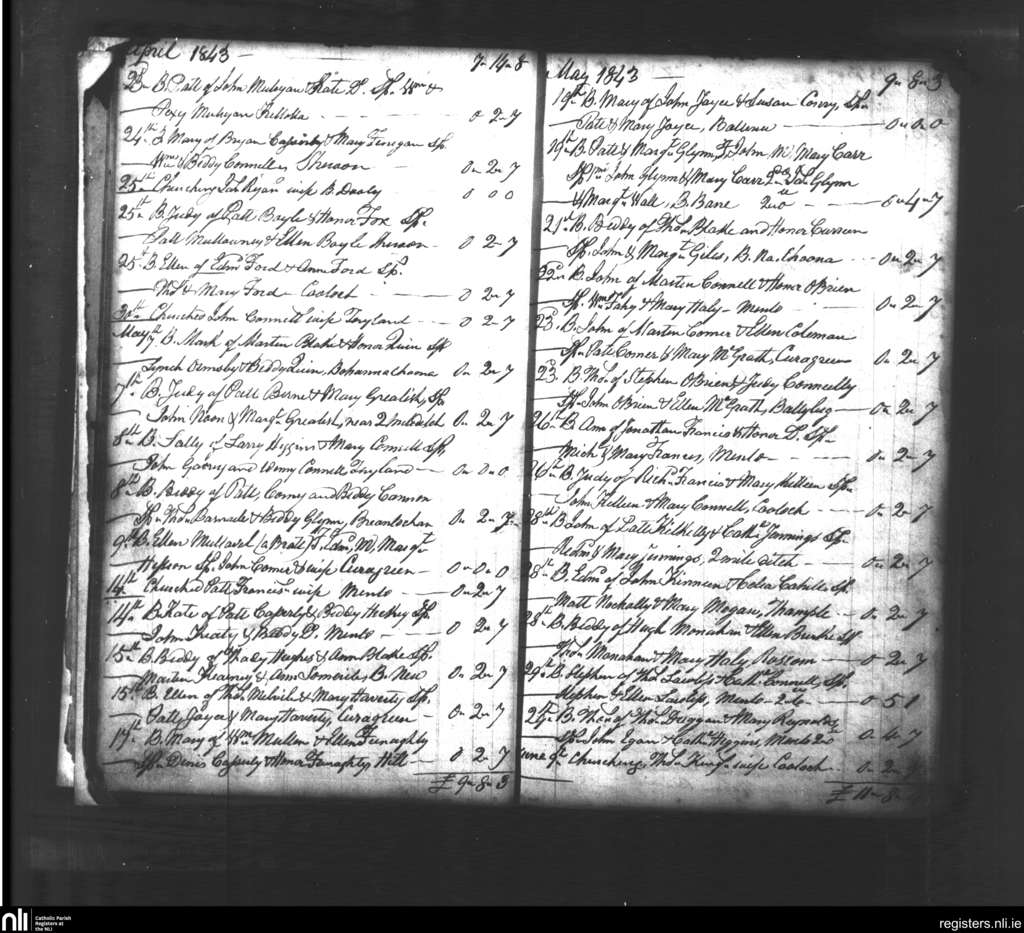 April 1843 — 7-14-8
23. B. Patt of John Mulryan & Kate D. Sp. Wm &
Mulryan — 0 2-7
24th B Mary of Bryan & Mary Finegan Sp
Wm & Biddy Connell — 0-2-7
25th Churching Jas Ryan's wife B. Dooly — 0 0 0
25th B. Judy of Patt Boyle & Honor Fox Sp.
Patt Mullowney & Ellen Boyle — 0 2-7
25th B Ellen of Edmd Ford & Ann Ford Sp.
Thos & Mary Ford — Cooloch — 0 2-7
30th Churched John Connell's wife — 0 2-7
May 7th B. Mark of Martin Blake & Honor Quin Sp
Lynch Ormsby & Biddy Quin, — 0-2-7
7th B. Judy of Patt Berne & Mary Grealish, Sp
John Noon & Margt Grealish, near 2 mile ditch 0-2-7
8th B. Sally of Larry Higgins & Mary Connell Sp,
John and Winny Connell — 0-0-0
8th B. Biddy of Patt, Conny and Biddy Cannon
Sp. Thos & Biddy Glynn, Breanlochan 0-2-7
9th B. Ellen (a Brat) F. Edmd, M. Margt
Hesson Sp. John Comer & wife Curagreen — 0-0-0
14 Churched Patt Francis' wife Menlo — 0-2-7
14th B. Kate of Patt & Biddy Sp.
John & Biddy D. Menlo — 0 2-7
15th B. Biddy of Thady Hughes & Ann Blake Sp.
Martin Kearney & Ann — 0-2-7
15th B. Ellen of Thos Melvile & Mary Haverty Sp.
Patt Joyce & Mary Haverty, Curagreen — 0-2-7
17th B. Mary of Wm Mullen & Ellen
Sp. Denis & Honor Hill — 0 2 7
£ 9-8-3
May 1843 — 9-8-3
19th B. Mary of John Joyce & Susan Conry, Sp.
Patt & Mary Joyce, — 0-0-0
19th B. Patt & Margt Glynn F. John, M. Mary Carr
Sp 1mi John Glynn & Mary Carr 2di Jas Glynn
& Margt Wall, B. Bane — 0-4-7
21st B. Biddy of Thos Blake and Honor Curren
Sp. John & Margt Giles, B. Na. Choona — 0-2-7
22d B. John of Martin Connell & Honor O'Brien
Sp. Wm Fahy & Mary Haly — Menlo — 0-2-7
23d B. John of Martin Comer & Ellen Coleman
Sp. Patt Comer & Mary McGrath, Curagreen 0-2-7
23. B. Thos of Stephen O'Brien & Judy Connelly
Sp. John O'Brien & Ellen McGrath, — 0-2-7
26th B Ann of Jonathan Francis & Honor D. Sp.
Mich & Mary Francis, Menlo — 0-2-7
26th B. Judy of Richd Francis & Mary Killeen Sp.
John Killeen & Mary Connell, Cooloch — 0-2-7
28th B of Patt Kilkelly & Cathe Jennings Sp.
Redmd & Mary Jennings, 2 mile ditch — 0-2-7
28th B. Edmd of John Kinneen & Celia Cahill Sp.
Matt & Mary Mogan, — 0-2-7
28th B. Biddy of Hugh Monahan & Ellen Burke Sp
Thos Monahan & Mary Haly, — 0 2-7
29th B. Stephen of Thos Lawless & Cathe Connell, Sp.
Stephen & Ellen Lawless, Menlo — 0 5 1
29th B. Thos of Thos Duggan & Mary Reynolds
Sp. John Egan & Cathe Higgins, Menlo — 0-4-7
June 9th Churching, Thos King's wife Cooloch — 0-2-7
£ 11-8-
nli
Catholic Parish
Registers at
the NLI
registers.nli.ie